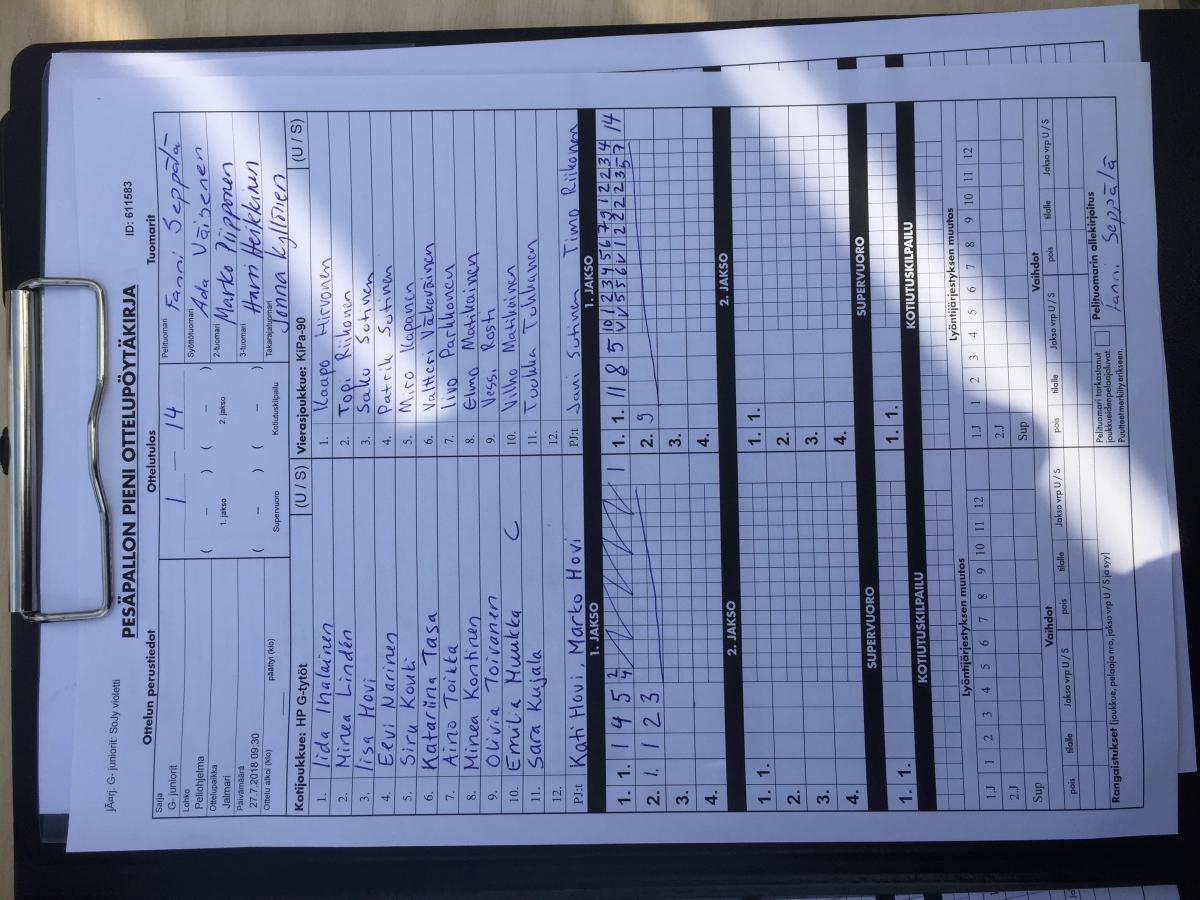 jÄarj. G- juniorit: SoJy violetti
PESÄPALLON PIENI OTTELUPÖYTÄKIRJA
ID: 611583
Ottelun perustiedot
Sarja
G- juniorit
Lohko
Peliohjelma
Ottelupaikka
Jalmari
Päivämäärä
27.7.2018 09:30
Ottelu alkoi (klo) päättyi (klo)
Ottelutulos
1 — 14
( – ) ( – )
1. jakso 2. jakso
( – ) ( – )
Supervuoro Kotiutuskilpailu
Tuomarit
Pelituomari Fanni Seppälä
Syöttötuomari Ada Väisenen
2-tuomari Marko Piipponen
3-tuomari Harri Heikkinen
Takarajatuomari Jonna Kyllönen
Kotijoukkue: HP G-tytöt (U / S)
1. Iida Ihalainen
2. Minea Lindén
3. Iisa Hovi
4. Eevi Narinen
5. Siru Kouti
6. Katariina Tasa
7. Aino Toikka
8. Minea Kontinen
9. Olivia Toivanen
10. Emilia Muukka C
11. Sara Kujala
12.
PJ:t Kati Hovi, Marko Hovi
Vierasjoukkue: KiPa-90 (U / S)
1. Kaapo Hirvonen
2. Topi Riikonen
3. Saku Sutinen
4. Patrik Sutinen
5. Miro Kapanen
6. Valtteri Väkeväinen
7. Iivo Parkkonen
8. Elmo Matikainen
9. Nessi Rosti
10. Vilho Matikainen
11. Tuukka Turkkanen
12.
PJ:t Jani Sutinen Timo Riikonen
1. JAKSO 1. JAKSO
1. 1. 1 4 5 1
2. 1. 2 3
3.
4.
1. 1. 11 8 5 10 1 2 3 4 5 6 7 9 1 2 2 3 4 14
2. 9
3.
4.
2. JAKSO 2. JAKSO
1. 1.
2.
3.
4.
1. 1.
2.
3.
4.
SUPERVUORO SUPERVUORO
1. 1.
1. 1.
KOTIUTUSKILPAILU KOTIUTUSKILPAILU
Lyöntijärjestyksen muutos
1.J 1 2 3 4 5 6 7 8 9 10 11 12
2.J
Sup
Vaihdot
pois tilalle Jakso vrp U / S pois tilalle Jakso vrp U / S
Lyöntijärjestyksen muutos
1.J 1 2 3 4 5 6 7 8 9 10 11 12
2.J
Sup
Vaihdot
pois tilalle Jakso vrp U / S pois tilalle Jakso vrp U / S
Rangaistukset (joukkue, pelaaja nro, jakso vrp U / S ja syy)
Pelituomari tarkastanut
joukkueidenpelaajaluvat.
Puutteet merkitty erikseen.
Pelituomarin allekirjoitus
Fanni Seppälä